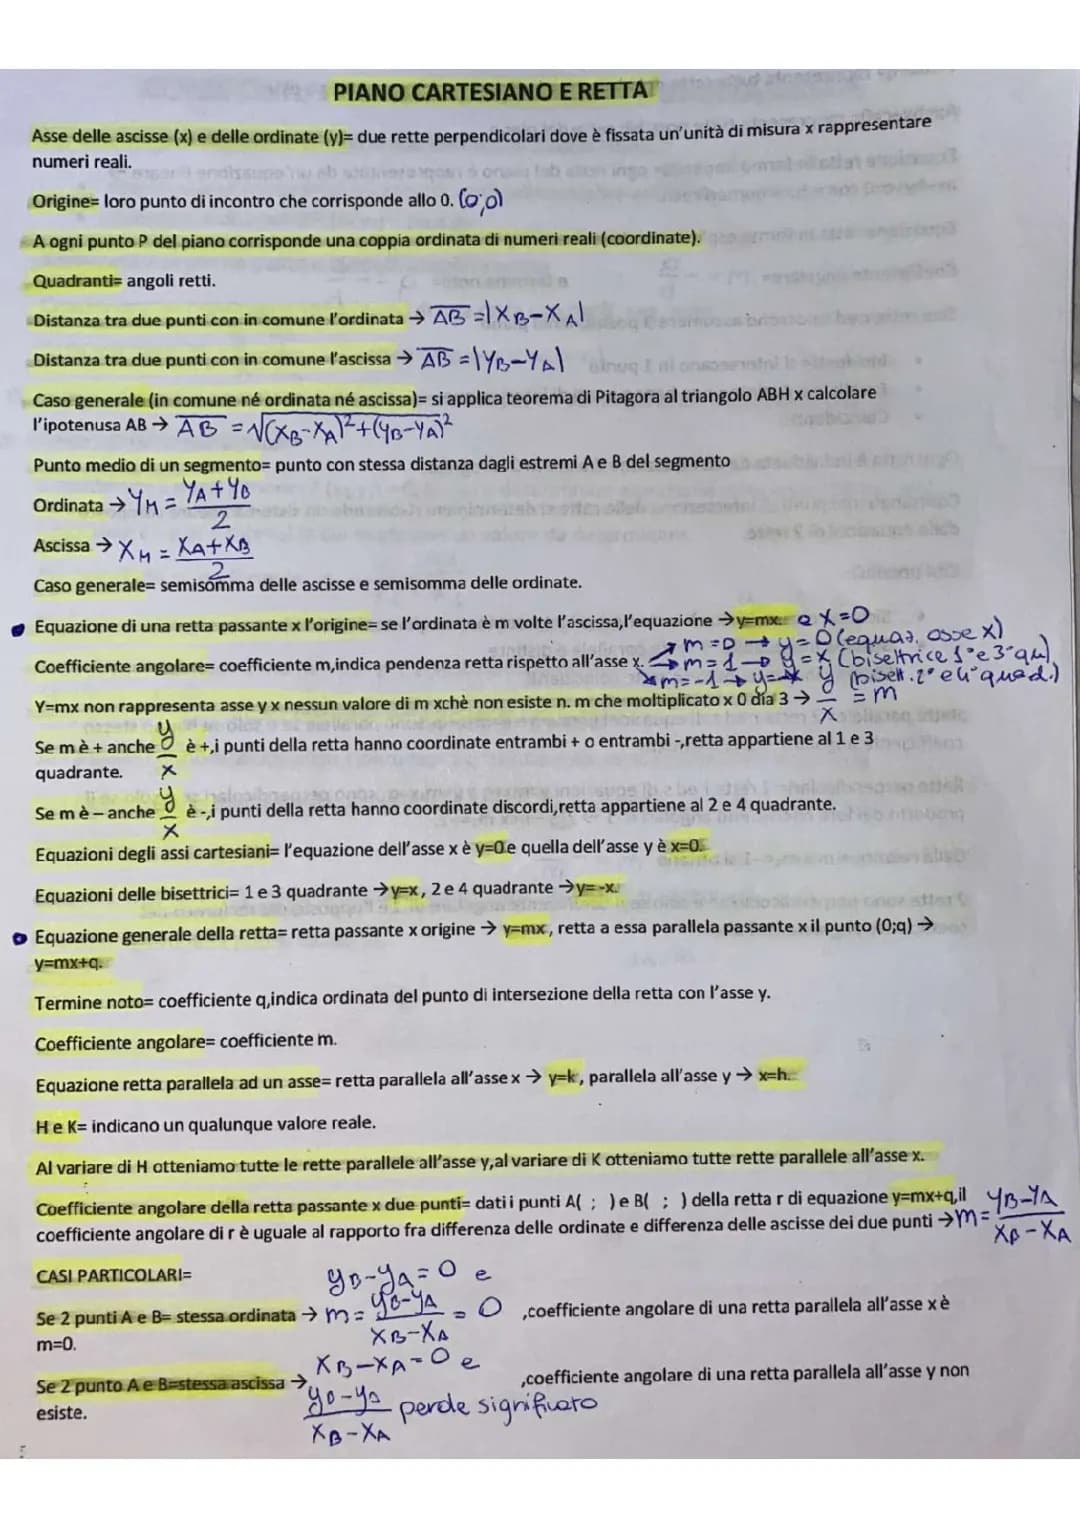 PIANO CARTESIANO E RETTA
Asse delle ascisse (x) e delle ordinate (y)= due rette perpendicolari dove è fissata un'unità di misura x rappresentare
numeri reali.
Origine= loro punto di incontro che corrisponde allo 0. (0;0)
A ogni punto P del piano corrisponde una coppia ordinata di numeri reali (coordinate).
Quadranti= angoli retti.
Distanza tra due punti con in comune l'ordinata → AB =|XB-XA|
Distanza tra due punti con in comune l'ascissa → AB =|YB-YA|
Caso generale (in comune né ordinata né ascissa)= si applica teorema di Pitagora al triangolo ABH x calcolare
l'ipotenusa AB → AB =√(XB-XA)²+(YB-YA)²
Punto medio di un segmento= punto con stessa distanza dagli estremi A e B del segmento
Ordinata → YM = YA+YB / 2
Ascissa → XM = XA+XB / 2
Caso generale= semisomma delle ascisse e semisomma delle ordinate.
Equazione di una retta passante x l'origine= se l'ordinata è m volte l'ascissa,l'equazione →y=mx. e X=0
m=0 → y=0 (equaz. asse x)
Coefficiente angolare= coefficiente m,indica pendenza retta rispetto all'asse x. m=1 → y=x (bisettrice 1°e3°qu)
m=-1 → y= (bisett. 2° e 4° quad.)
Y=mx non rappresenta asse y x nessun valore di m xchè non esiste n. m che moltiplicato x 0 dia 3 → y/x = m
Se m è + anche y/x è +,i punti della retta hanno coordinate entrambi + o entrambi -,retta appartiene al 1 e 3
quadrante.
Se m è – anche y/x è -,i punti della retta hanno coordinate discordi,retta appartiene al 2 e 4 quadrante.
Equazioni degli assi cartesiani= l'equazione dell'asse x è y=0 e quella dell'asse y è x=0.
Equazioni delle bisettrici= 1 e 3 quadrante →y=x, 2 e 4 quadrante →y= -x.
Equazione generale della retta= retta passante x origine → y=mx, retta a essa parallela passante x il punto (0;q) →
y=mx+q.
Termine noto= coefficiente q,indica ordinata del punto di intersezione della retta con l'asse y.
Coefficiente angolare= coefficiente m.
Equazione retta parallela ad un asse= retta parallela all'asse x → y=k, parallela all'asse y → x=h.
H e K= indicano un qualunque valore reale.
Al variare di H otteniamo tutte le rette parallele all'asse y,al variare di K otteniamo tutte rette parallele all'asse x.
Coefficiente angolare della retta passante x due punti= dati i punti A( ; ) e B( ; ) della retta r di equazione y=mx+q,il
coefficiente angolare di r è uguale al rapporto fra differenza delle ordinate e differenza delle ascisse dei due punti →m= YB-YA / XB-XA
CASI PARTICOLARI=
yB-yA=0 e
Se 2 punti A e B= stessa ordinata → m= yB-yA / XB-XA = 0 ,coefficiente angolare di una retta parallela all'asse x è
m=0.
XB-XA=0 e
Se 2 punto A e B=stessa ascissa → yB-yA / XB-XA perde significato ,coefficiente angolare di una retta parallela all'asse y non
esiste.